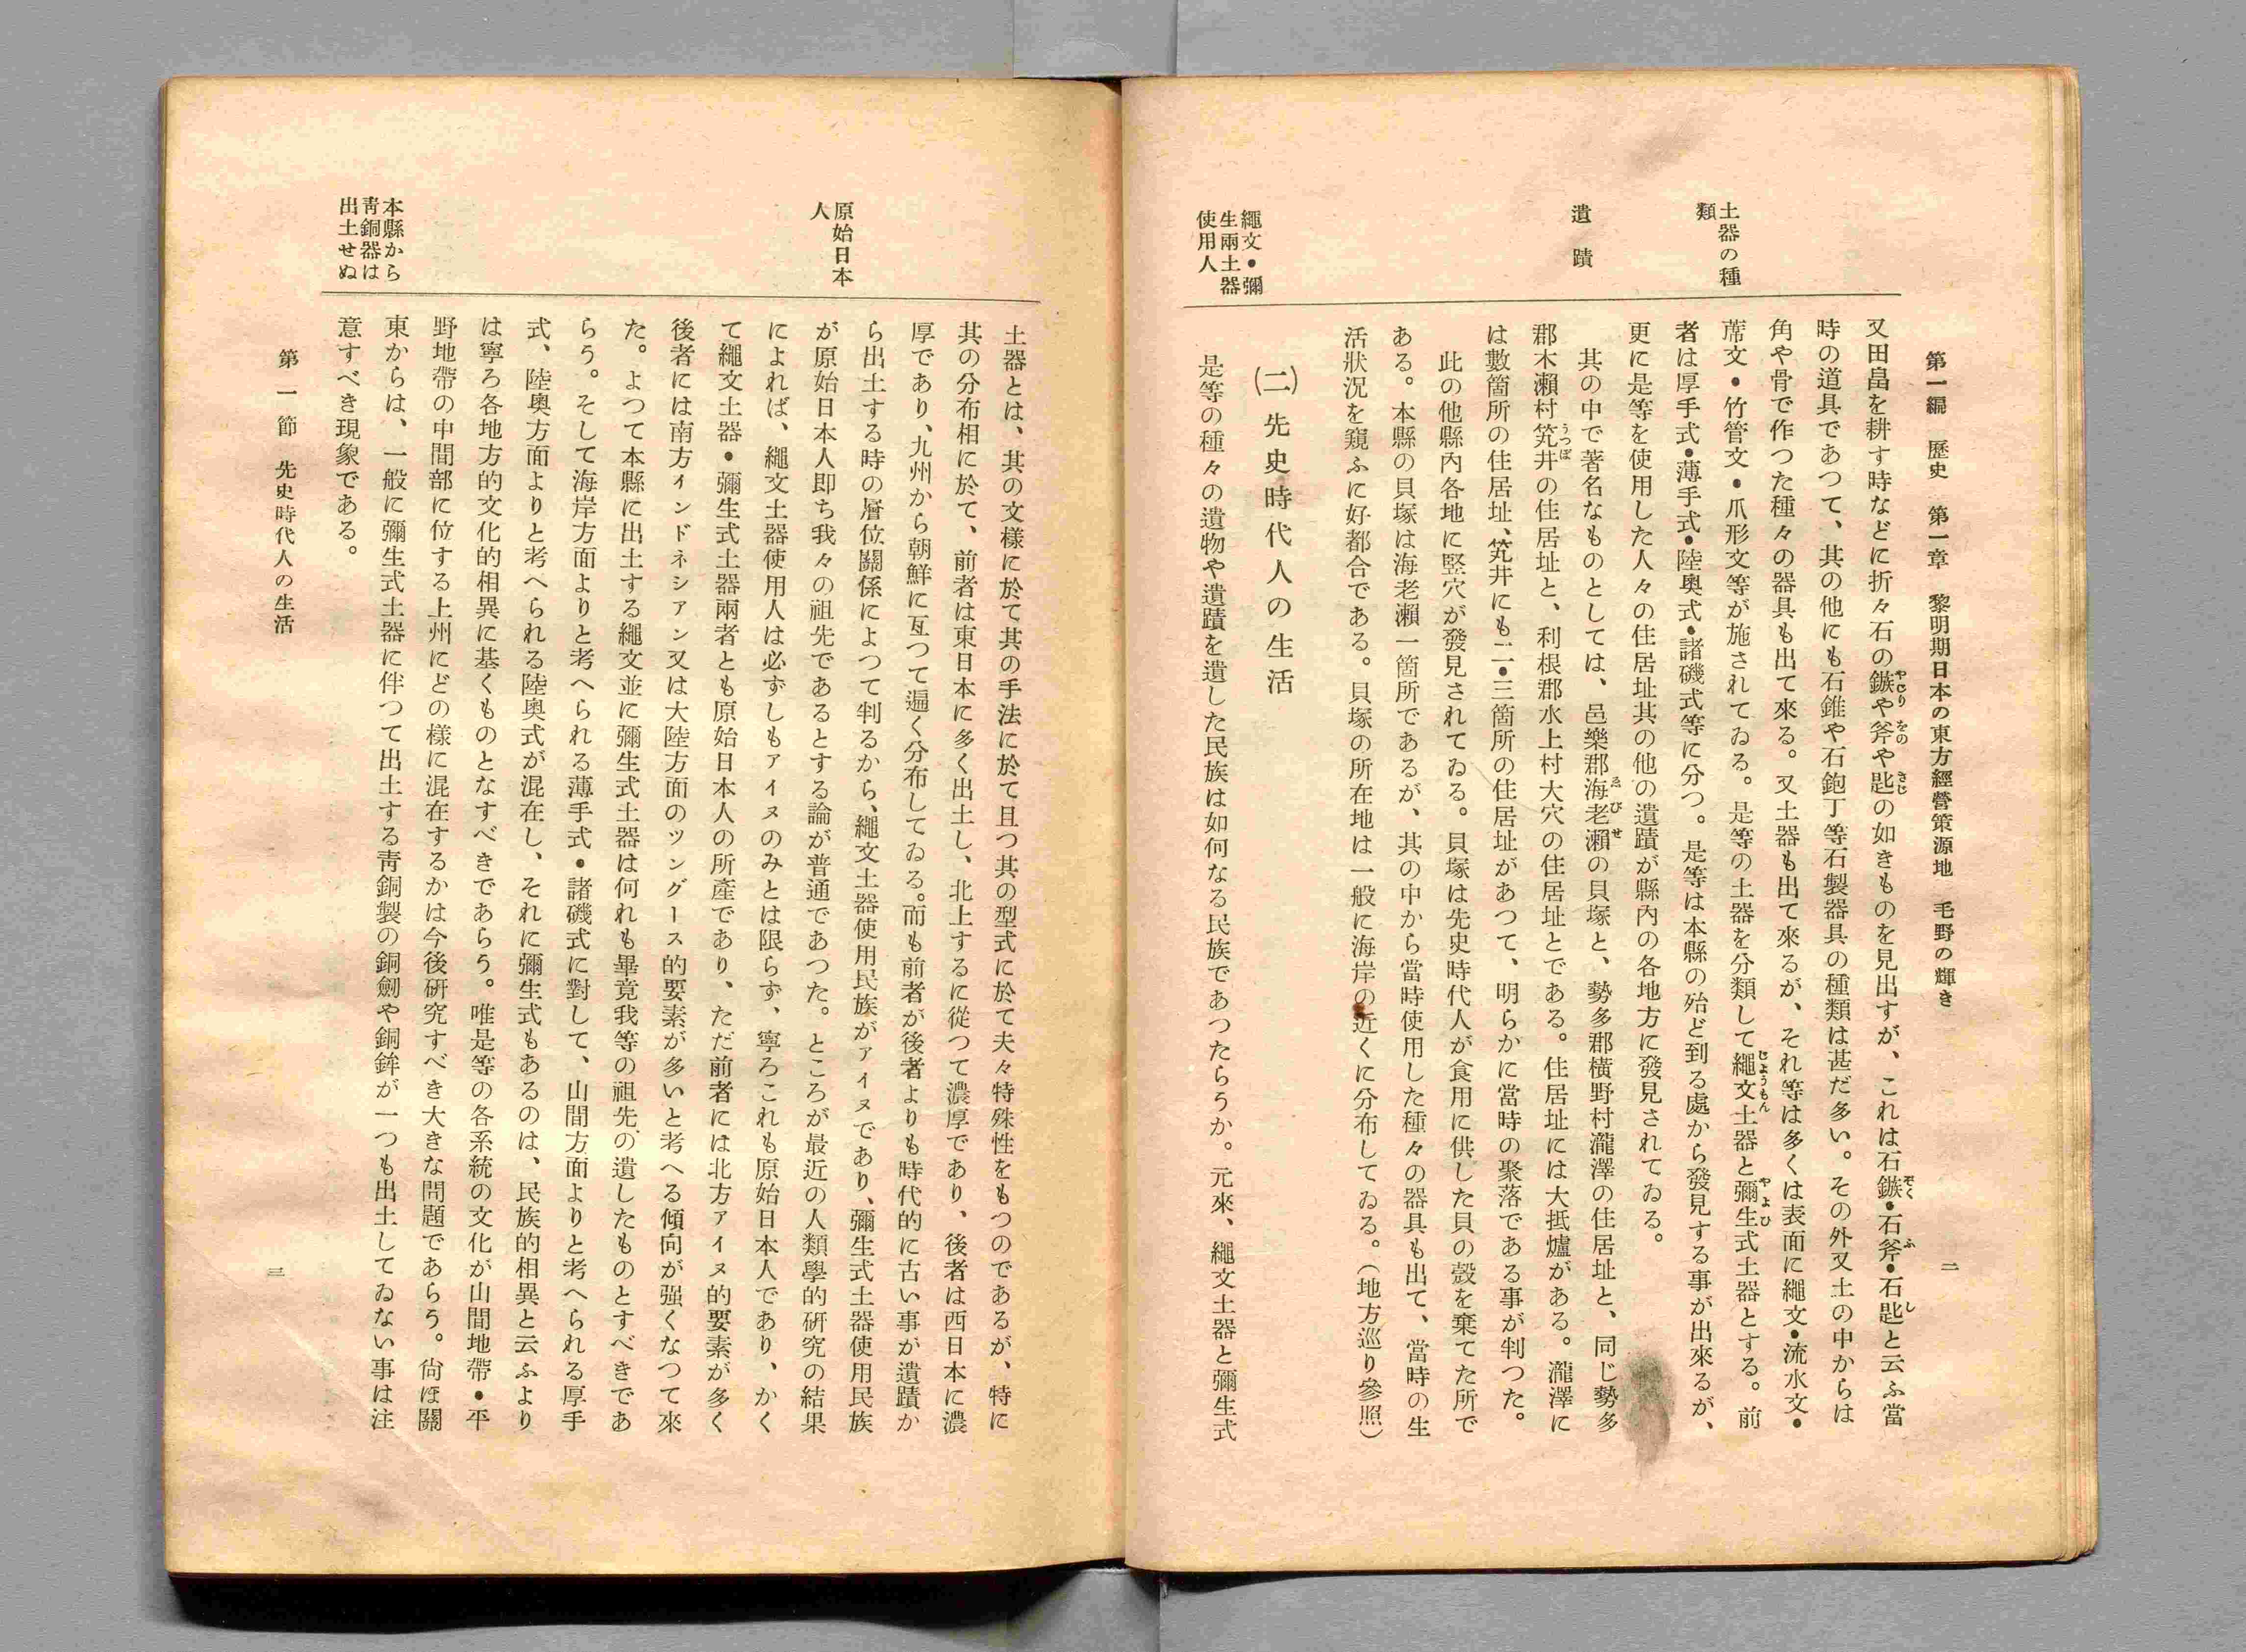 第一編　歷史　第一章　黎明期日本の東方經營策源地　毛野の輝き
二
土器の種
類
遺蹟
繩文・彌
生兩土器
使用人
又田畠を耕す時などに折々石の鏃や斧や匙の如きものを見出すが、これは石鏃・石斧・石匙と云ふ當
時の道具であつて、其の他にも石錐や石鉋丁等石製器具の種類は甚だ多い。その外又土の中からは
角や骨で作つた種々の器具も出て來る。又土器も出て來るが、それ等は多くは表面に繩文・流水文・
蓆文・竹管文・爪形文等が施されてゐる。是等の土器を分類して繩文土器と彌生式土器とする。前
者は厚手式・薄手式・陸奧式・諸磯式等に分つ。是等は本縣の殆ど到る處から發見する事が出來るが、
更に是等を使用した人々の住居址其の他の遺蹟が縣內の各地方に發見されてゐる。
其の中で著名なものとしては、邑樂郡海老瀨の貝塚と、勢多郡橫野村瀧澤の住居址と、同じ勢多
郡木瀨村笂井の住居址と、利根郡水上村大穴の住居址とである。住居址には大抵爐がある。瀧澤に
は數箇所の住居址、笂井にも二・三箇所の住居址があつて、明らかに當時の聚落である事が判つた。
此の他縣內各地に竪穴が發見されてゐる。貝塚は先史時代人が食用に供した貝の殼を棄てた所で
ある。本縣の貝塚は海老瀨一箇所であるが、其の中から當時使用した種々の器具も出て、當時の生
活狀況を窺ふに好都合である。貝塚の所在地は一般に海岸の近くに分布してゐる。（地方巡り參照）
(二)　先史時代人の生活
是等の種々の遺物や遺蹟を遺した民族は如何なる民族であつたらうか。元來、繩文土器と彌生式
原始日本
人
本縣から
靑銅器は
出土せぬ
土器とは、其の文樣に於て其の手法に於て且つ其の型式に於て夫々特殊性をもつのであるが、特に
其の分布相に於て、前者は東日本に多く出土し、北上するに從つて濃厚であり、後者は西日本に濃
厚であり、九州から朝鮮に亙つて遍く分布してゐる。而も前者が後者よりも時代的に古い事が遺蹟か
ら出土する時の層位關係によつて判るから、繩文土器使用民族がアイヌであり、彌生式土器使用民族
が原始日本人卽ち我々の祖先であるとする論が普通であつた。ところが最近の人類學的硏究の結果
によれば、繩文土器使用人は必ずしもアイヌのみとは限らず、寧ろこれも原始日本人であり、かく
て繩文土器・彌生式土器兩者とも原始日本人の所產であり、ただ前者には北方アイヌ的要素が多く
後者には南方インドネシアン又は大陸方面のツングース的要素が多いと考へる傾向が强くなつて來
た。よつて本縣に出土する繩文並に彌生式土器は何れも畢竟我等の祖先の遺したものとすべきであ
らう。そして海岸方面よりと考へられる薄手式・諸磯式に對して、山間方面よりと考へられる厚手
式、陸奧方面よりと考へられる陸奧式が混在し、それに彌生式もあるのは、民族的相異と云ふより
は寧ろ各地方的文化的相異に基くものとなすべきであらう。唯是等の各系統の文化が山間地帶・平
野地帶の中間部に位する上州にどの樣に混在するかは今後硏究すべき大きな問題であらう。尙ほ關
東からは、一般に彌生式土器に伴つて出土する靑銅製の銅劍や銅鉾が一つも出土してゐない事は注
意すべき現象である。
第一節　先史時代人の生活
三